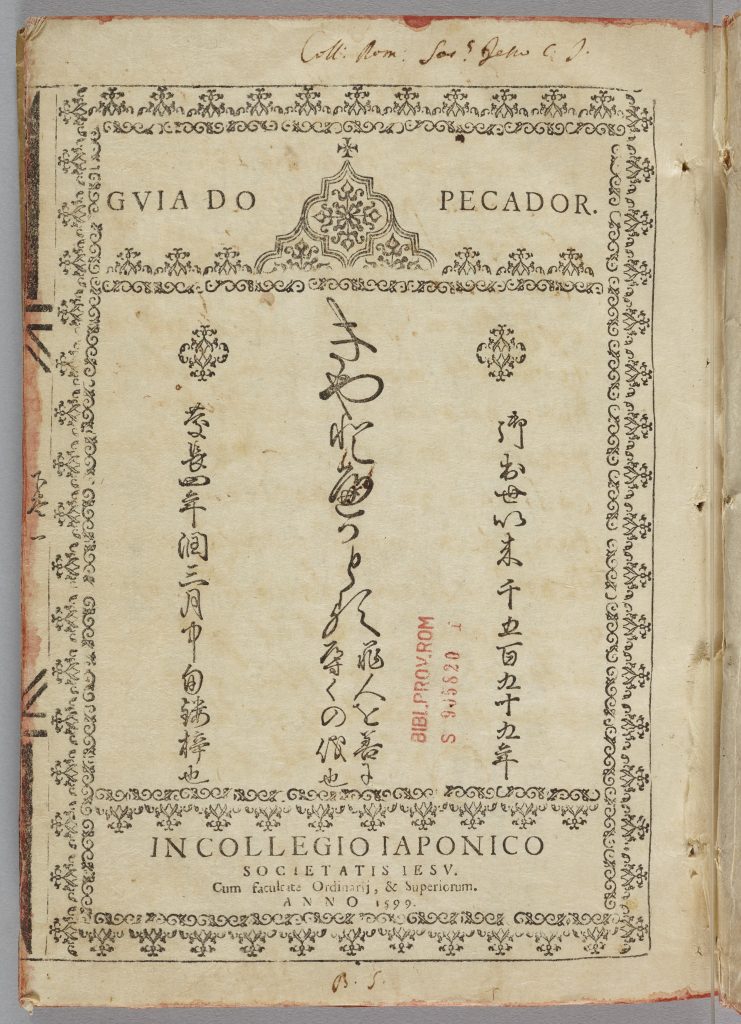 Coll: Rom: Soc.s Jesu C. J.
GVIA DO PECADOR.
御出世以来千五百九十九年
きやとへかとる
罪人を善に
導くの儀也
慶長四年潤三月中旬鏤梓也
BIBL.PROV.ROM
IN COLLEGIO IAPONICO
SOCIETATIS IESV.
Cum facultate Ordinarij, & Superiorum.
ANNO 1599.
B. S.